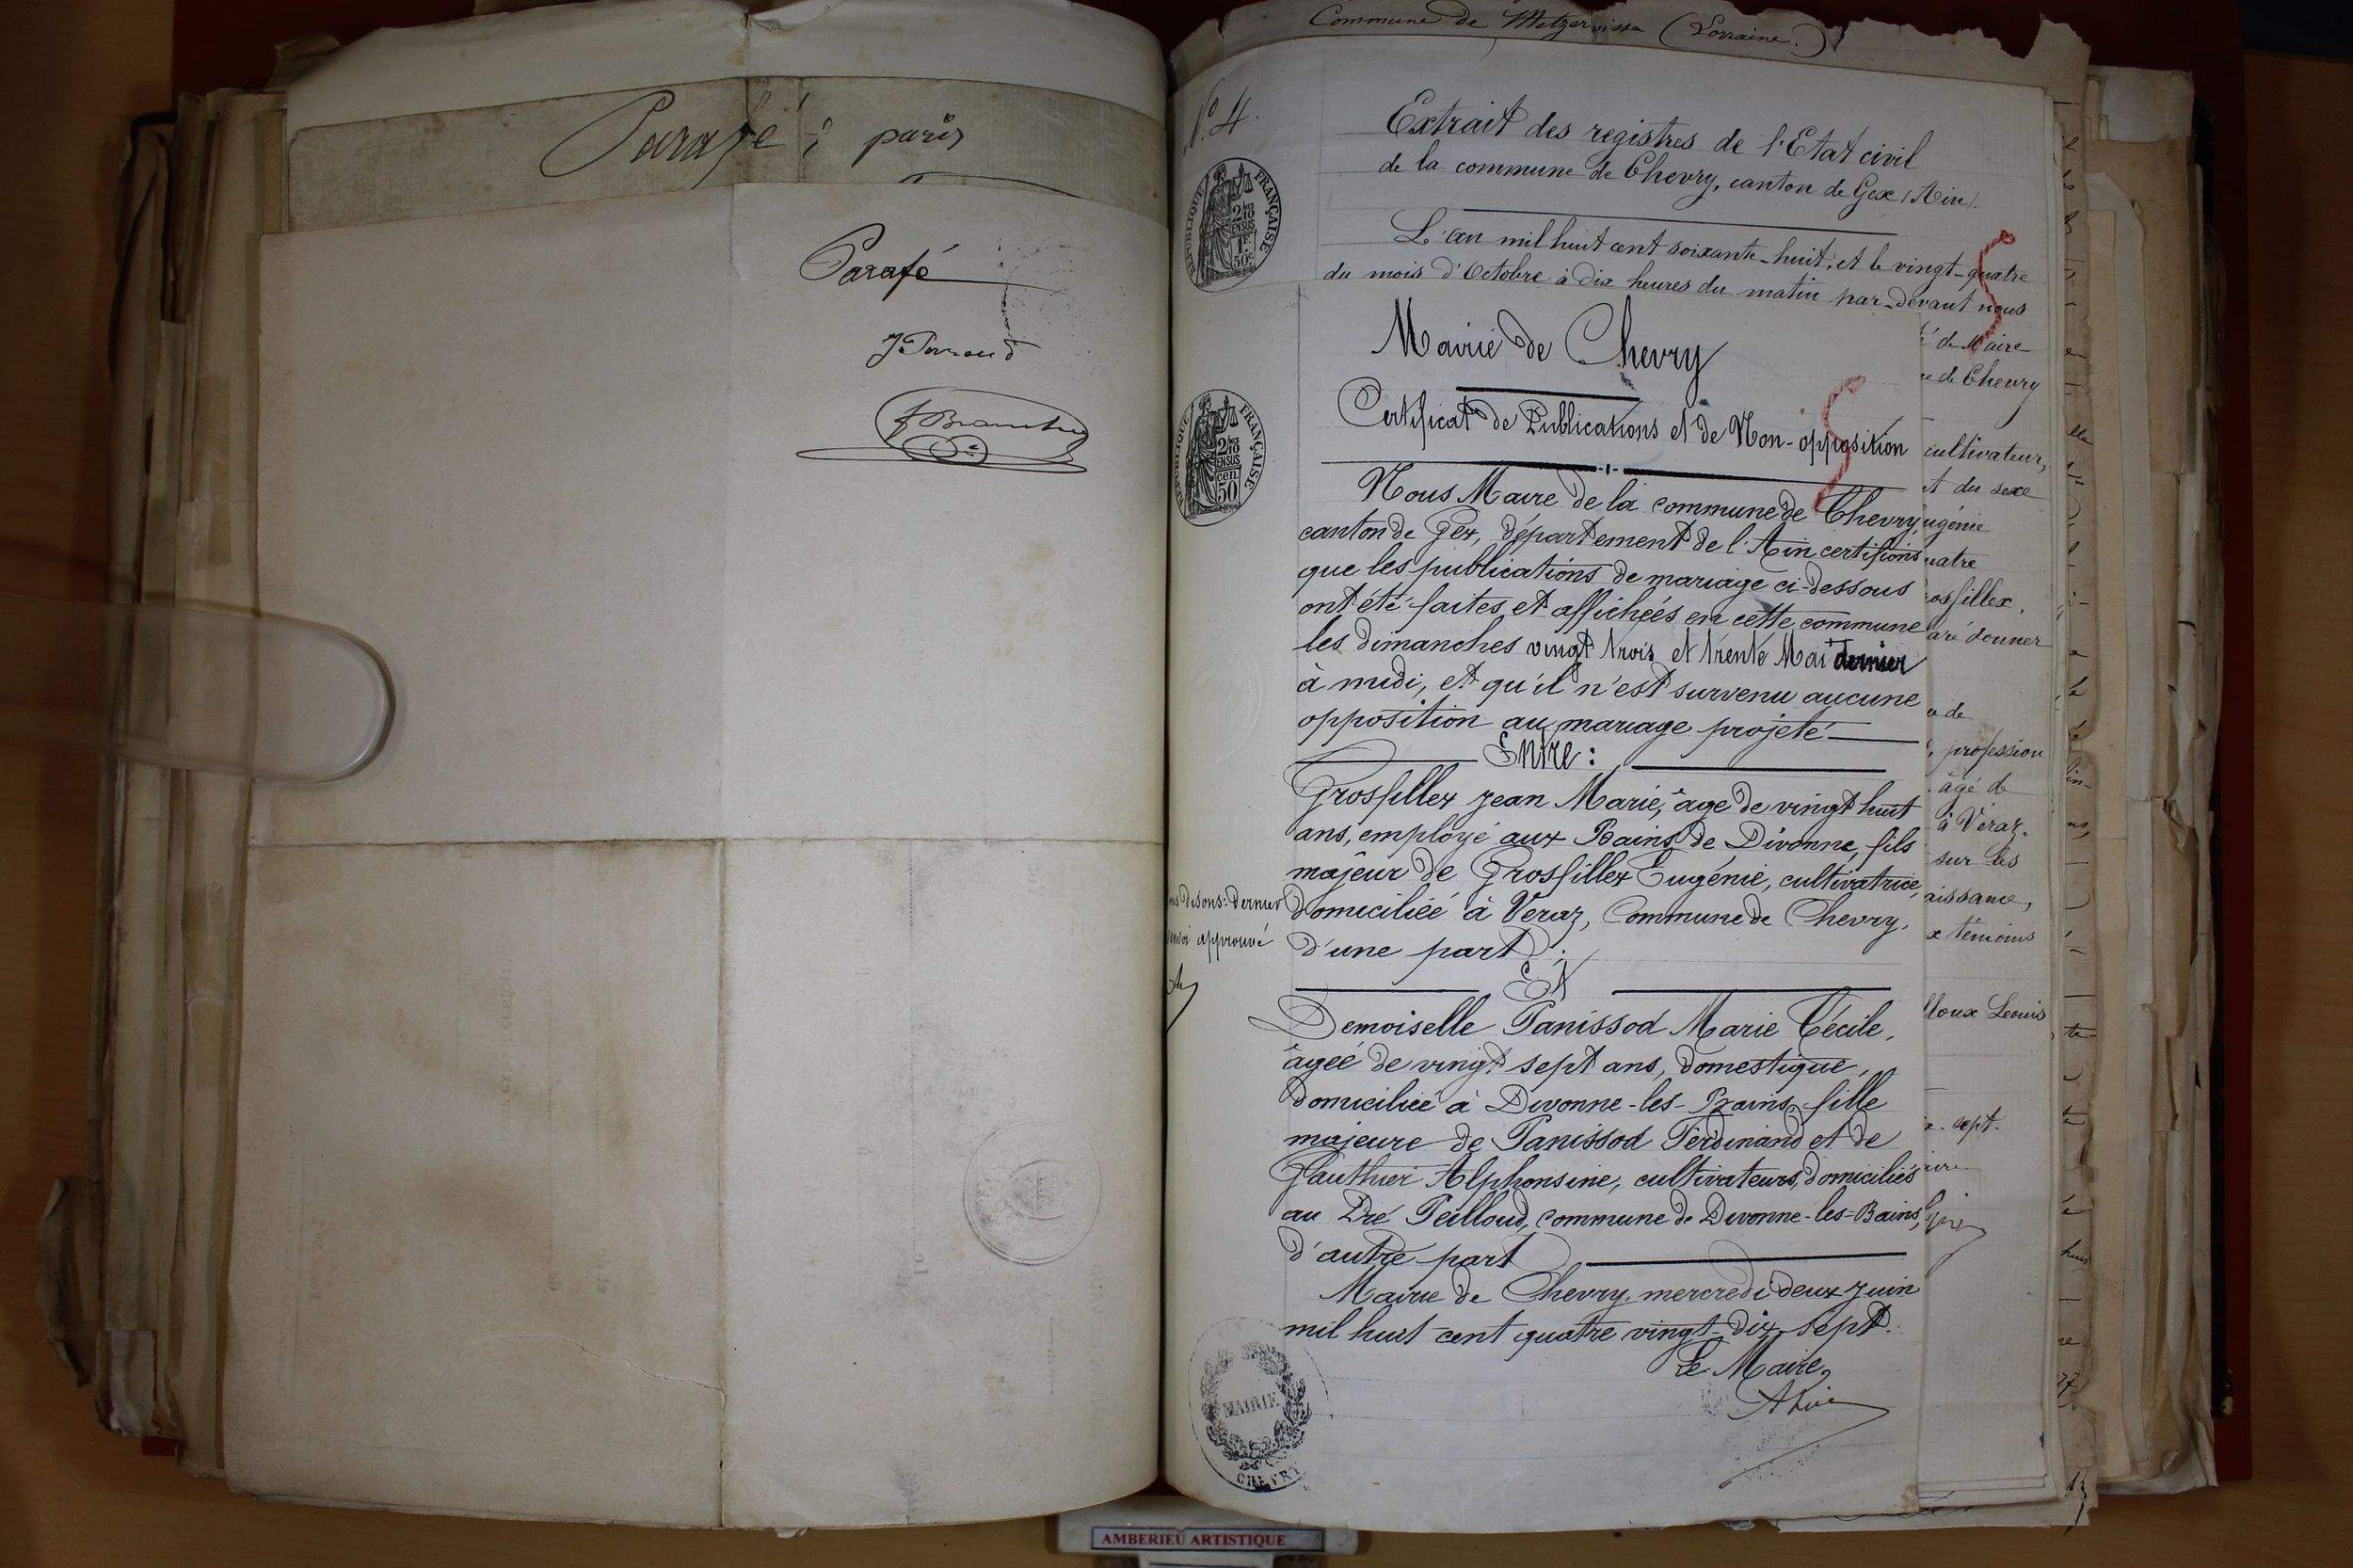 Parafé : paris
Parafé
Commune de Metzervisse (Lorraine.)
N°. 4.
Extrait des registres de l'Etat civil
de la commune de Chevry, canton de Gex (Ain).
L'an mil huit cent soixante-huit, et le vingt-quatre
du mois d'Octobre à dix heures du matin par-devant nous
RÉPUBLIQUE FRANÇAISE
2/10 EN SUS
1F 50c
Mairie de Chevry
Certificat de Publications et de Non-opposition
RÉPUBLIQUE FRANÇAISE
2/10 EN SUS
50 cen
Nous Maire de la commune de Chevry,
canton de Gex, département de l'Ain certifions
que les publications de mariage ci-dessous
ont été faites et affichées en cette commune
les dimanches vingt trois et trente Mai dernier
à midi, et qu'il n'est survenu aucune
opposition au mariage projeté
Entre :
Grosfillex Jean Marie, âgé de vingt huit
ans, employé aux Bains de Divonne, fils
majeur de Grosfillex Eugénie, cultivatrice,
domiciliée à Veraz, Commune de Chevry,
d'une part ;
disons: dernier
approuvé
Et
Demoiselle Panissod Marie Cécile,
âgée de vingt sept ans, domestique,
domiciliée à Divonne-les-Bains, fille
majeure de Panissod Ferdinand et de
Gauthier Alphonsine, cultivateurs, domiciliés
au Pré Peilloud, commune de Divonne-les-Bains,
d'autre part
Mairie de Chevry, mercredi deux juin
mil huit cent quatre vingt-dix sept.
Le Maire,
MAIRIE
CHEVRY
de Maire
de Chevry
cultivateur,
et du sexe
donner
de
profession
âgé de
à Véraz.
sur les
témoins
Louis
sept.
AMBERIEU ARTISTIQUE